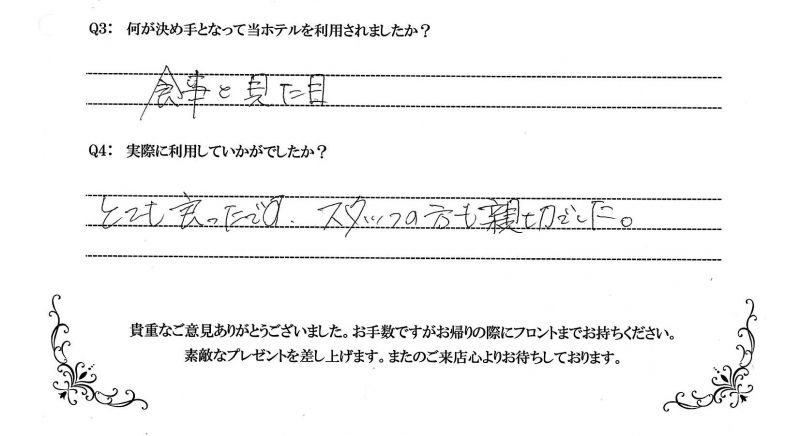 Q3: 何が決め手となって当ホテルを利用されましたか？
食事と見た目
Q4: 実際に利用していかがでしたか？
とても良ったです。スタッフの方も親切でした。
貴重なご意見ありがとうございました。お手数ですがお帰りの際にフロントまでお持ちください。
素敵なプレゼントを差し上げます。またのご来店心よりお待ちしております。